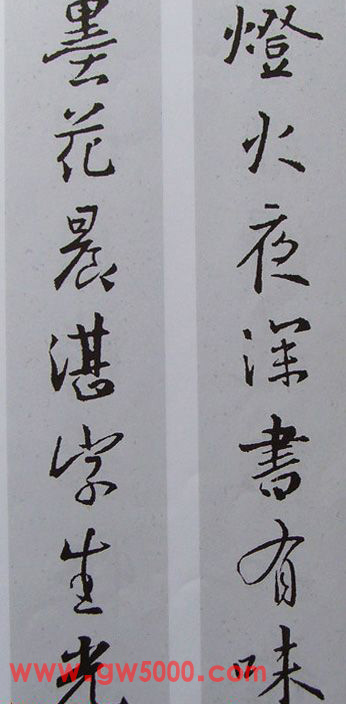 燈火夜深書有味
墨花晨湛字生光
www.gw5000.com